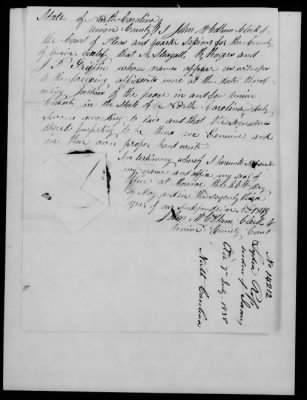 State of North Carolina
Union County I John McCollum Clerk of
the Court of Pleas and Quarter Sessions for the County
of Union Certify that H. Rogers and
J. P. Griffin whose names appear as
to the foregoing were at the date there
Justices of the peace in and for Union
County in the State of North Carolina duly
sworn according to law and that the signatures
thereto purporting to be theirs are Genuine and
in their own proper hand write
In testimony whereof I hereunto
my name and affix my seal of
office at Monroe this 26th day
of May and in the seventy third
year of our Independence A.D. 1849
John McCollum Clerk
Union County Court
No 14212
Lydia
widow of James
Act 7 July 1838
North Carolina